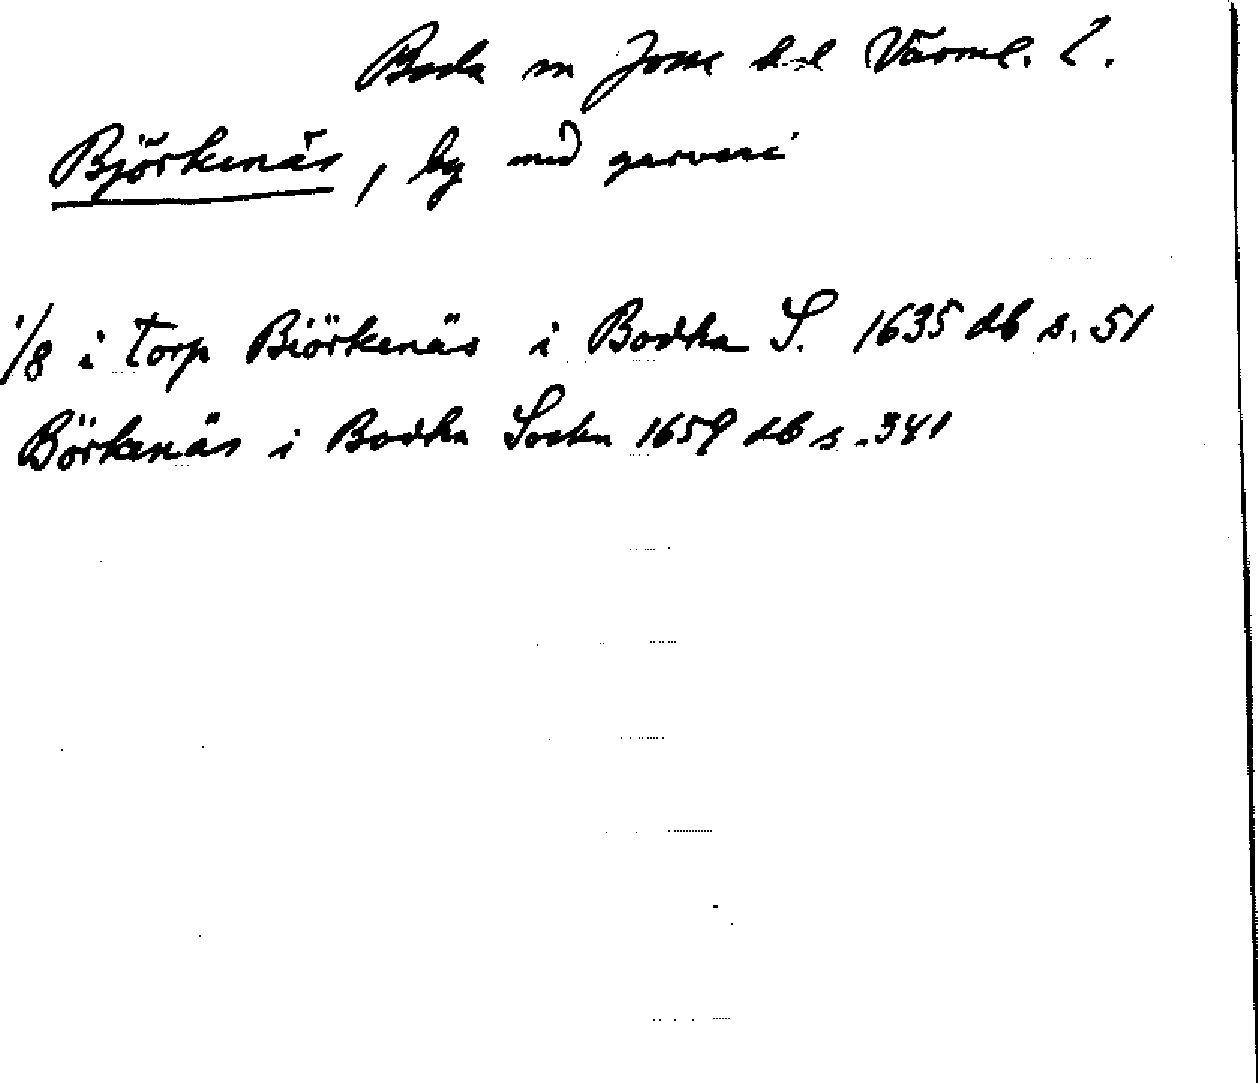 Boda sn Jösse hd Värml. L.
Björkenäs, by med garveri
1/8 i Torp Biörkenäs i Bodha S. 1635 db s. 51
Börkenäs i Bodha Sockn 1659 db s. 341